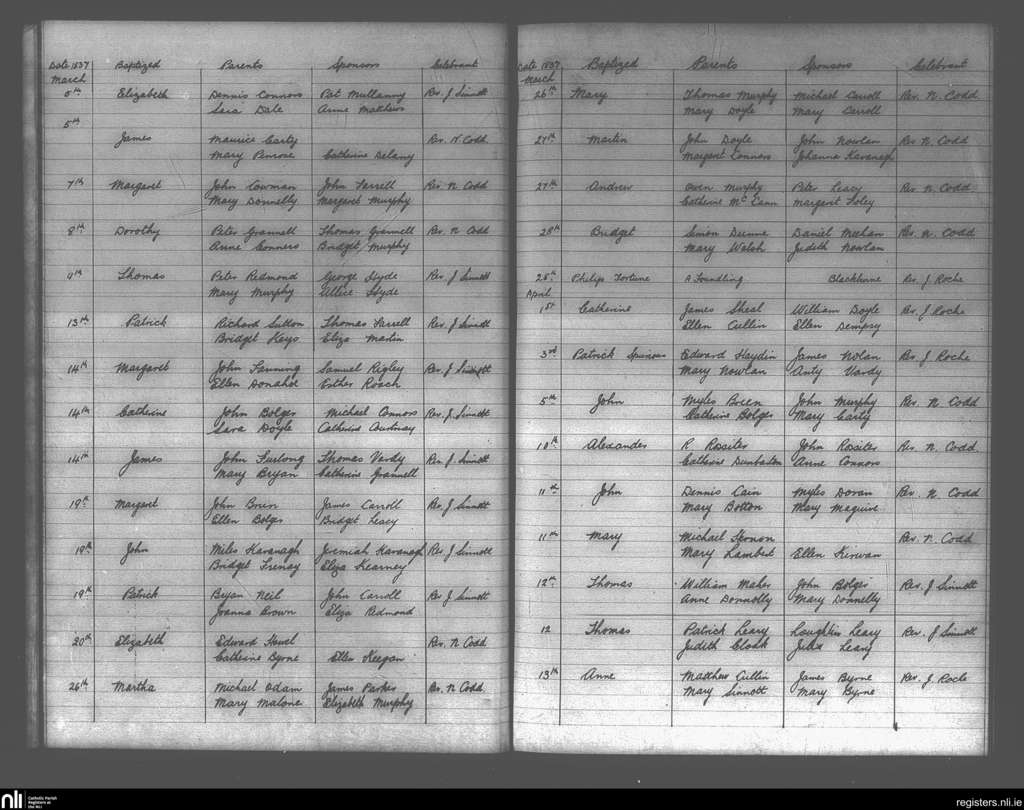 Date 1837 Baptized Parents Sponsors Celebrant
March
5th Elizabeth Dennis Connors Pat Mullanny Rev. J Sinnott
Sara Dale Anne Mathews
5th
James Maurice Carty Rev. N Codd
Mary Penrose Catherine Delany
7th Margaret John Cowman John Farrell Rev. N Codd
Mary Donnelly Margaret Murphy
8th Dorothy Peter Grannell Thomas Grennell Rev. N Codd
Anne Conners Bridget Murphy
9th Thomas Peter Redmond George Hyde Rev. J Sinnott
Mary Murphy Allice Hyde
13th Patrick Richard Sutton Thomas Farrell Rev. J Sinnott
Bridget Keys Eliza Martin
14th Margaret John Fanning Samuel Rigley Rev. J Sinnott
Ellen Donahoe Esther Roach
14th Catherine John Bolger Michael Connors Rev. J Sinnott
Sara Doyle Catherine
14th James John Furlong Thomas Verdy Rev. J Sinnott
Mary Bryan Catherine Grannell
19th Margaret John Breen James Carroll Rev. J Sinnott
Ellen Bolger Bridget Leacy
19th John Miles Kavanagh Jeremiah Kavanagh Rev. J Sinnott
Bridget Eliza Kearney
19th Patrick Bryan Neil John Carroll Rev J Sinnott
Joanna Brown Eliza Redmond
20th Elizabeth Edward Rev. N Codd
Catherine Byrne Ellen Keegan
26th Martha Michael Odam James Parkes Rev. N Codd
Mary Malone Elizabeth Murphy
Date 1837 Baptized Parents Sponsors Celebrant
March
26th Mary Thomas Murphy Michael Carroll Rev. N. Codd
Mary Doyle Mary Carroll
27th Martin John Doyle John Nowlan Rev. N Codd
Margaret Connors Johanna Kavanagh
27th Andrew Owen Murphy Peter Leacy Rev. N Codd
Catherine McCann Margaret Foley
28th Bridget Simon Dunne Daniel Meehan Rev. N. Codd
Mary Walsh Judith Nowlan
28th Philip Fortune A Foundling Blackhune Rev. J Roche
April
1st Catherine James Sheal William Doyle Rev. J Roche
Ellen Cullin Ellen Dempsy
3rd Patrick Edward Haydin James Nolan Rev. J Roche
Mary Nowlan Anty Vardy
5th John Myles Breen John Murphy Rev. N Codd
Catherine Bolger Mary Carty
10th Alexander R Rositer John Rositer Rev. N Codd
Catherine Dunbarton Anne Connors
11th John Dennis Cain Myles Doran Rev. N. Codd
Mary Botton Mary Maguire
11th Mary Michael Rev. N. Codd
Mary Lambert Ellen Kerwan
12th Thomas William Maher John Bolger Rev. J Sinnott
Anne Donnolly Mary Donnelly
12 Thomas Patrick Leary Loughlin Leary Rev. J Sinnott
Judith Cloak Julia Leary
13th Anne Matthew Cullin James Byrne Rev. J Roche
Mary Sinnott Mary Byrne
nli Catholic Parish
Registers at
the NLI
registers.nli.ie